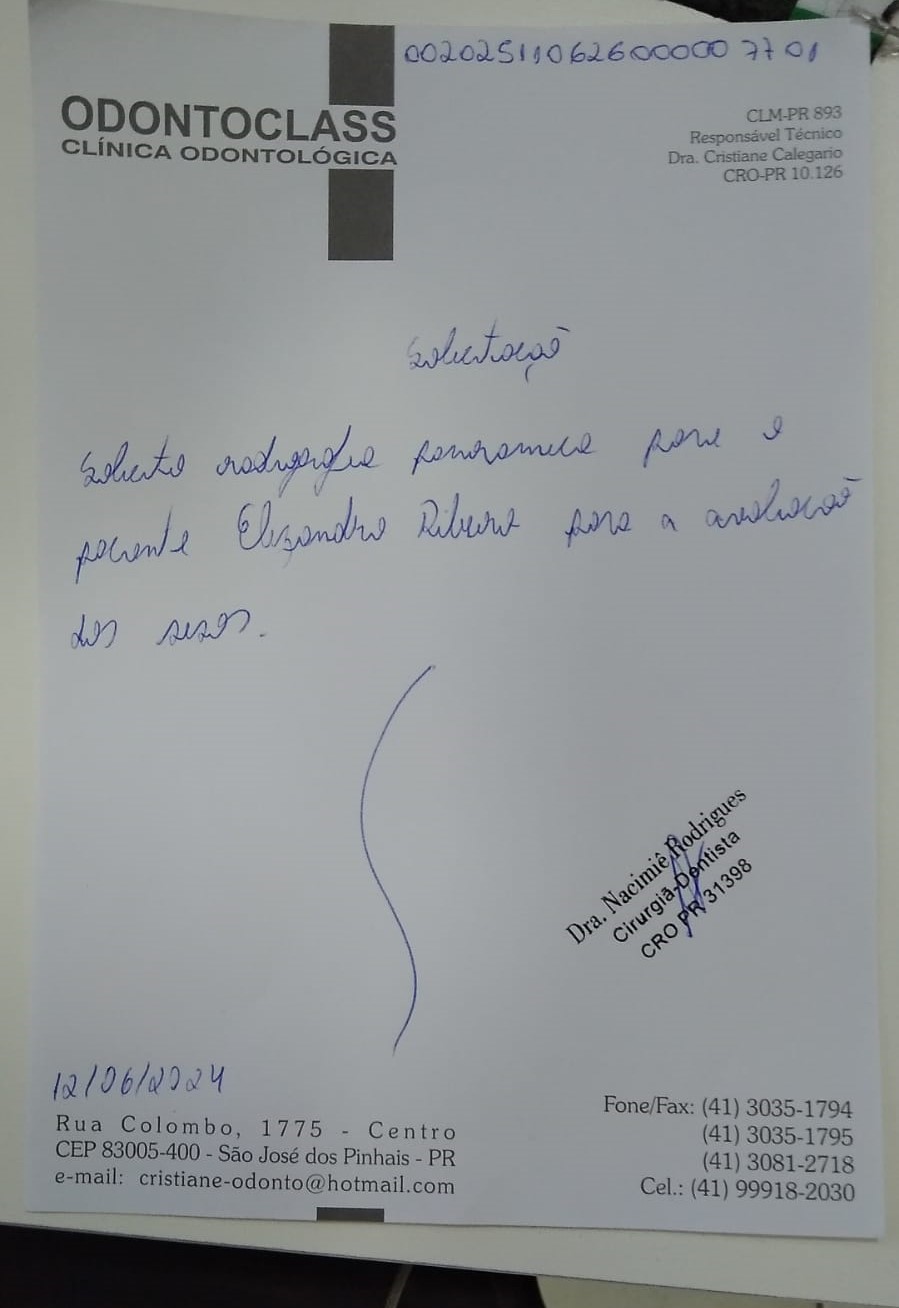 00202511062600000 7701
ODONTOCLASS
CLÍNICA ODONTOLÓGICA
CLM-PR 893
Responsável Técnico
Dra. Cristiane Calegario
CRO-PR 10.126
Solicitação
Solicito radiografia panoramica para o
paciente Elizandro Ribeiro para a avaliação
dos sisos.
Dra. Nacimiê Rodrigues
Cirurgiã-Dentista
CRO PR 31398
12/06/2024
Rua Colombo, 1775 - Centro
CEP 83005-400 - São José dos Pinhais - PR
e-mail: cristiane-odonto@hotmail.com
Fone/Fax: (41) 3035-1794
(41) 3035-1795
(41) 3081-2718
Cel.: (41) 99918-2030